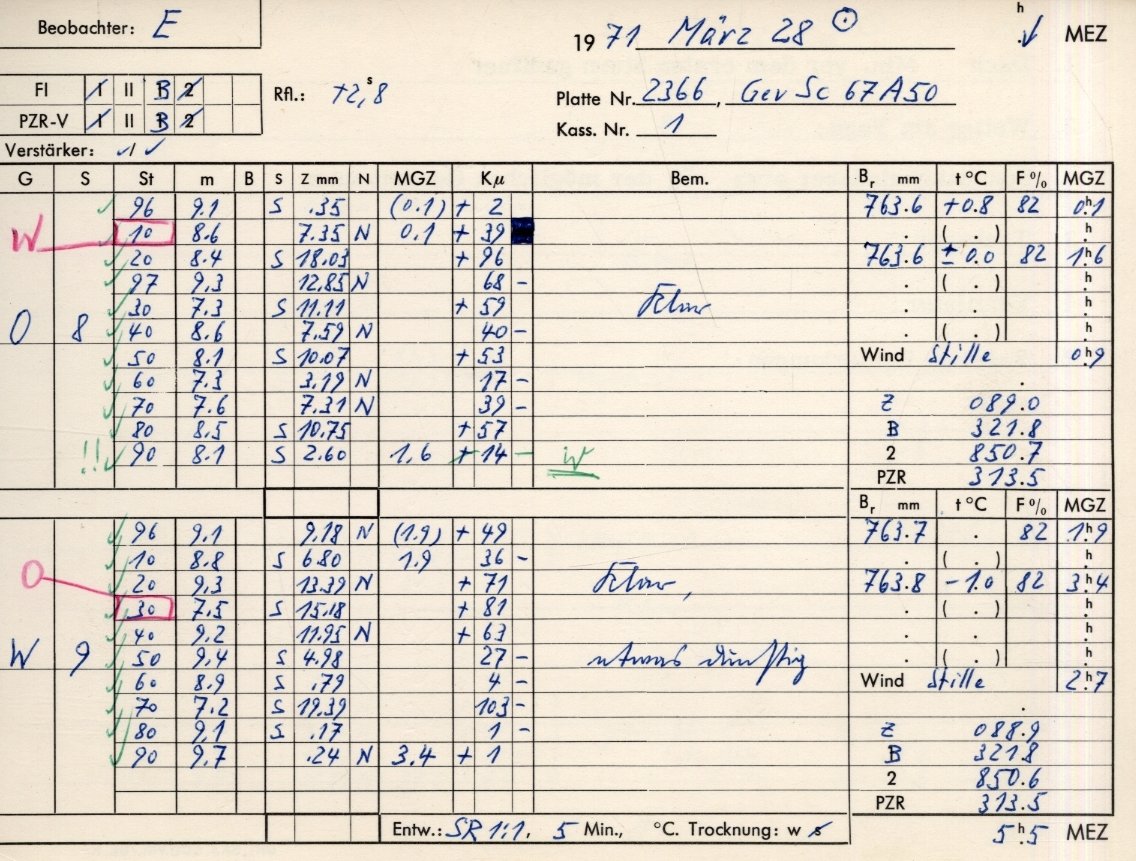 Beobachter: E
19 71 März 28 ⊙ h . MEZ
FI I II B 2
Rfl.: +2,8 s
PZR-V I II B 2
Platte Nr. 2366, Gev Sc 67A50
Kass. Nr. 1
Verstärker: √/√
G S St m B S Z mm N MGZ Kμ Bem. Br mm t °C F % MGZ
96 9.1 S .35 (0.1) + 2 763.6 +0.8 82 0h1
W 10 8.6 7.35 N 0.1 + 39 . ( . ) h
20 8.4 S 18.03 + 96 763.6 ± 0.0 82 1h6
97 9.3 12.85 N 68 - . ( . ) h
30 7.3 S 11.11 + 59 Klar . . h
O 8 40 8.6 7.59 N 40 - . ( . ) h
50 8.1 S 10.07 + 53 Wind Stille 0h9
60 7.3 3.19 N 17 - .
70 7.6 7.31 N 39 - Z 089.0
80 8.5 S 10.75 + 57 B 321.8
!! 90 8.1 S 2.60 1.6 + 14 - W 2 850.7
PZR 313.5
Br mm t °C F % MGZ
96 9.1 9.18 N (1.9) + 49 763.7 . 82 1h9
10 8.8 S 6.80 1.9 36 - . ( . ) h
O 20 9.3 13.39 N + 71 Klar, 763.8 -1.0 82 3h4
30 7.5 S 15.18 + 81 . ( . ) h
40 9.2 11.95 N + 63 . . h
W 9 50 9.4 S 4.98 27 - etwas dunstig . ( . ) h
60 8.9 S .79 4 - Wind Stille 2h7
70 7.2 S 19.39 103 - .
80 9.1 S .17 1 - Z 088.9
90 9.7 .24 N 3.4 + 1 B 321.8
2 850.6
PZR 313.5
Entw.: SR 1:1, 5 Min., °C. Trocknung: w s 5h5 MEZ